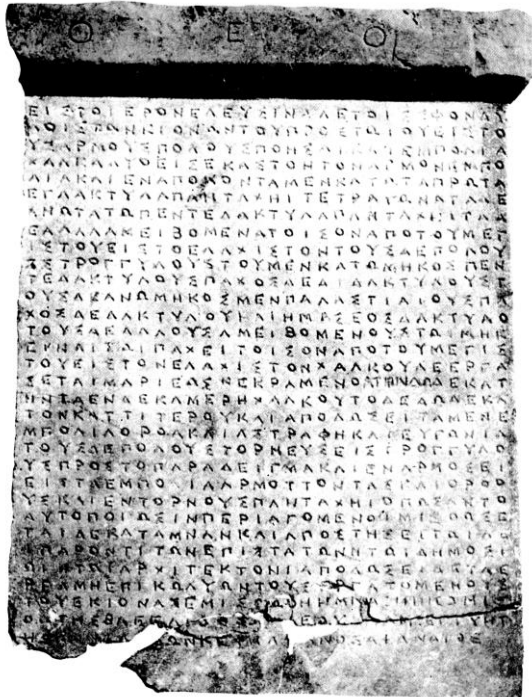 Θ Ε Ο Ι
ΕΙΣΤΟΙΕΡΟΝΕΛΕΥΣΙΝΑΔΕΤΟΙΣΣΦΟΝΔΥ
ΛΟΙΣΤΩΝΚΙΟΝΩΝΤΟΥΠΡΟΣΤΩΙΟΥΕΙΣΤΟ
ΥΣΑΡΜΟΥΣΠΟΛΟΥΣΠΟΗΣΑΙΚΑΙΕΜΠΟΛΙΑ
ΧΑΛΚΑΔΥΟΕΙΣΕΚΑΣΤΟΝΤΟΝΑΡΜΟΝΕΜΠΟ
ΛΙΑΚΑΙΕΝΑΠΟΛΟΝΤΑΜΕΝΚΑΤΩΤΑΠΡΩΤΑ
ΕΓΔΑΚΤΥΛΑΠΑΝΤΑΧΗΙΤΕΤΡΑΓΩΝΑΤΑΔΕ
ΑΝΩΤΑΤΩΠΕΝΤΕΔΑΚΤΥΛΑΠΑΝΤΑΧΗΙΤΑΔ
ΕΑΛΛΑΑΜΕΙΒΟΜΕΝΑΤΟΙΣΟΝΑΠΟΤΟΥΜΕΓ
ΙΣΤΟΥΕΙΣΤΟΕΛΑΧΙΣΤΟΝΤΟΥΣΔΕΠΟΛΟΥ
ΣΣΤΡΟΓΓΥΛΟΥΣΤΟΥΜΕΝΚΑΤΩΜΗΚΟΣΠΕΝ
ΤΕΔΑΚΤΥΛΟΥΣΠΑΧΟΣΔΕΔΙΔΑΚΤΥΛΟΥΣΤ
ΟΥΣΔΑΝΩΜΗΚΟΣΜΕΝΠΑΛΑΣΤΙΑΙΟΥΣΠΑ
ΧΟΣΔΕΔΑΚΤΥΛΟΥΚΑΙΗΜΙΣΕΟΣΔΑΚΤΥΛΟ
ΤΟΥΣΔΕΑΛΛΟΥΣΑΜΕΙΒΟΜΕΝΟΥΣΤΩΙΜΗΚ
ΕΙΚΑΙΤΩΙΠΑΧΕΙΤΟΙΣΟΝΑΠΟΤΟΥΜΕΓΙΣ
ΤΟΥΕΙΣΤΟΝΕΛΑΧΙΣΤΟΝΧΑΛΚΟΥΔΕΕΡΓΑ
ΣΕΤΑΙΜΑΡΙΕΩΣΚΕΚΡΑΜΕΝΟΥΤΗΝΔΩΔΕΚΑΤ
ΗΝΤΑΕΝΔΕΚΑΜΕΡΗΧΑΛΚΟΥΤΟΔΕΔΩΔΕΚΑ
ΤΟΝΚΑΤΤΙΤΕΡΟΥΚΑΙΑΠΟΔΩΣΕΙΤΑΜΕΝΕ
ΜΠΟΛΙΑΟΡΘΑΚΑΙΑΣΤΡΑΦΗΚΑΙΕΥΓΩΝΙΑ
ΤΟΥΣΔΕΠΟΛΟΥΣΤΟΡΝΕΥΣΕΙΣΤΡΟΓΓΥΛΟ
ΥΣΠΡΟΣΤΟΠΑΡΑΔΕΙΓΜΑΚΑΙΕΝΑΡΜΟΣΕΙ
ΕΙΣΤΑΕΜΠΟΛΙΑΑΡΜΟΤΤΟΝΤΑΣΕΙΣΟΡΘΟ
ΥΣΚΑΙΕΝΤΟΡΝΟΥΣΠΑΝΤΑΧΗΙΟΠΩΣΑΝΤΟ
ΑΥΤΟΠΟΙΩΣΙΝΠΕΡΙΑΓΟΜΕΝΟΙΜΙΣΘΩΣΕ
ΤΑΙΔΕΚΑΤΑΜΝΑΝΚΑΙΑΠΟΣΤΗΣΕΙ
ΠΑΡΟΝΤΩΝΤΩΝΕΠΙΣΤΑΤΩΝΤΩΙΔΗΜΟΣΙ
ΩΙΚΑΙΤΩΙΑΡΧΙΤΕΚΤΟΝΙΑΠΟΔΩΣΕΙΔΕ